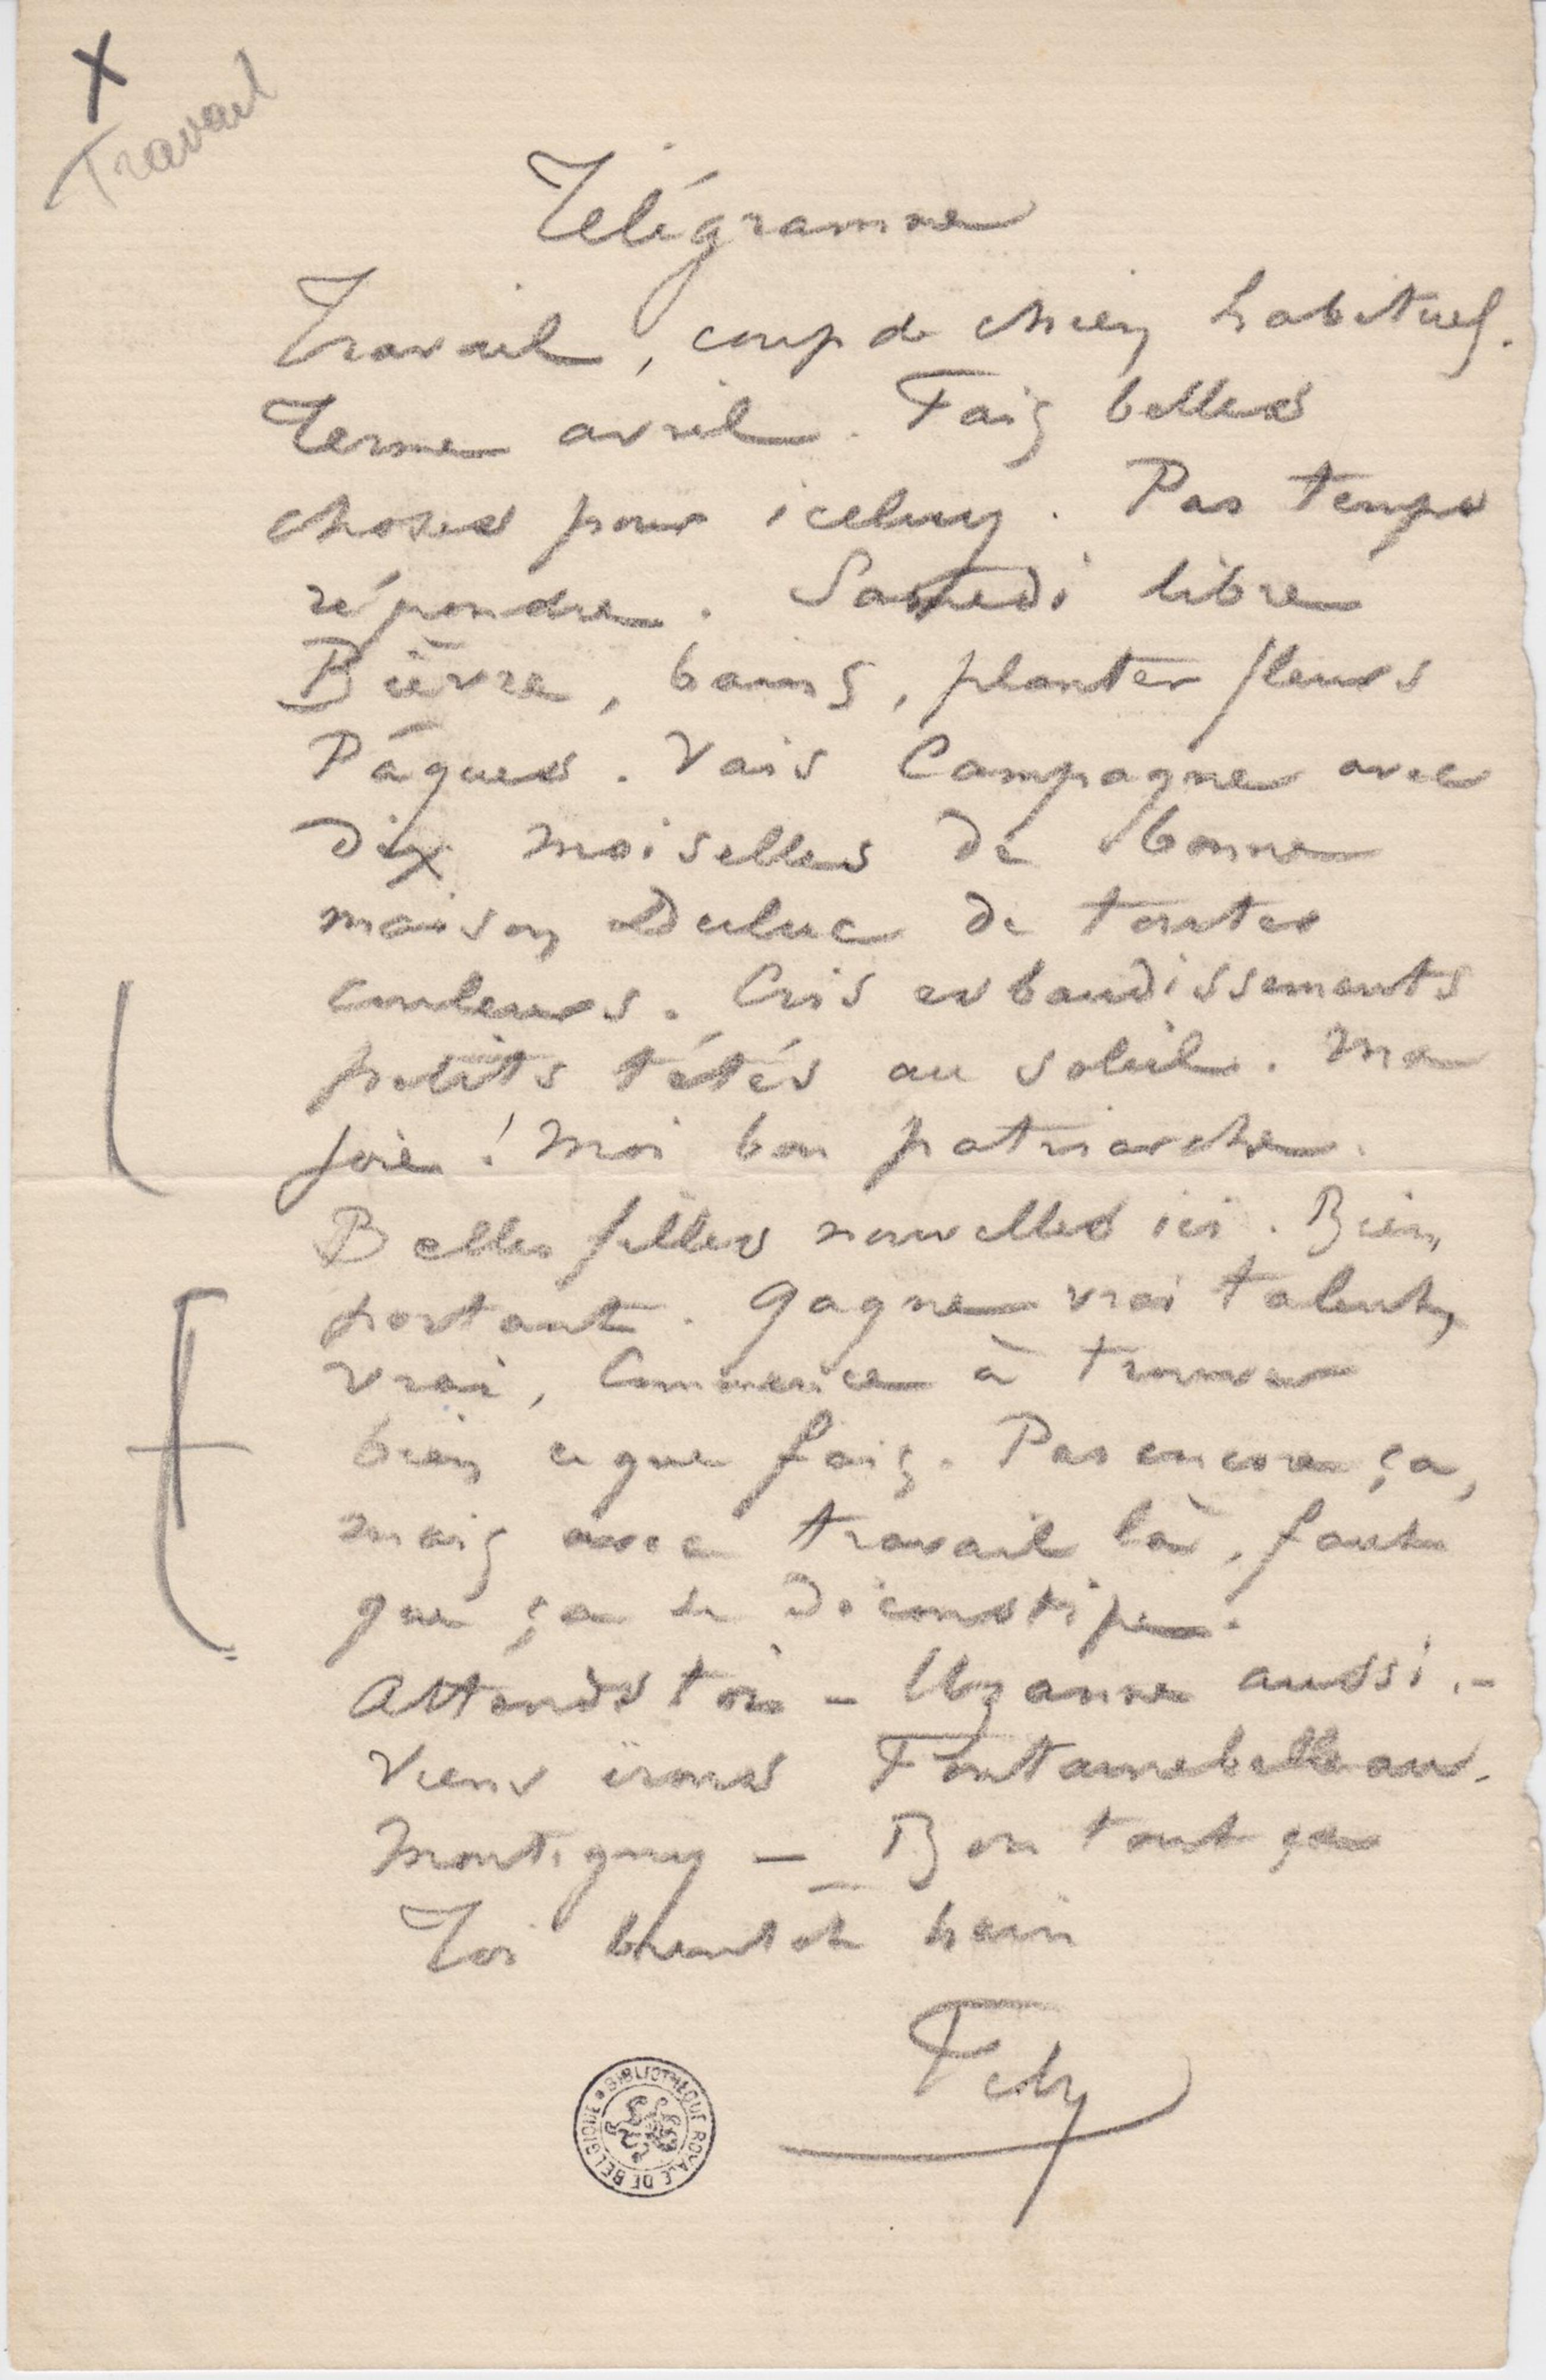 X
Travail
Télégramme
Travail, coup de chien habituel.
Terme avril. Fais belles
choses pour iceluy. Pas temps
répondre. Samedi libre
Bièvre, bains, planter fleurs
Pâques. Vais Campagne avec
dix moiselles de bonne
maison Duluc de toutes
couleurs. Cris esbaudissements
petits tétés au soleil. Ma
joie! Moi bon patriarche.
Belles filles nouvelles ici. Bien
portant. Gagne vrai talent,
vrai, Commence à trouver
bien ce que fais. Pas encore ça,
mais avec travail là, faut
que ça se déconstipe.
Attends toi – Uzanne aussi.–
Viens irons Fontainebelleau.
Montigny — Bon tout ça
Toi bientôt hein
Fély
BIBLIOTHÈQUE ROYALE DE BELGIQUE